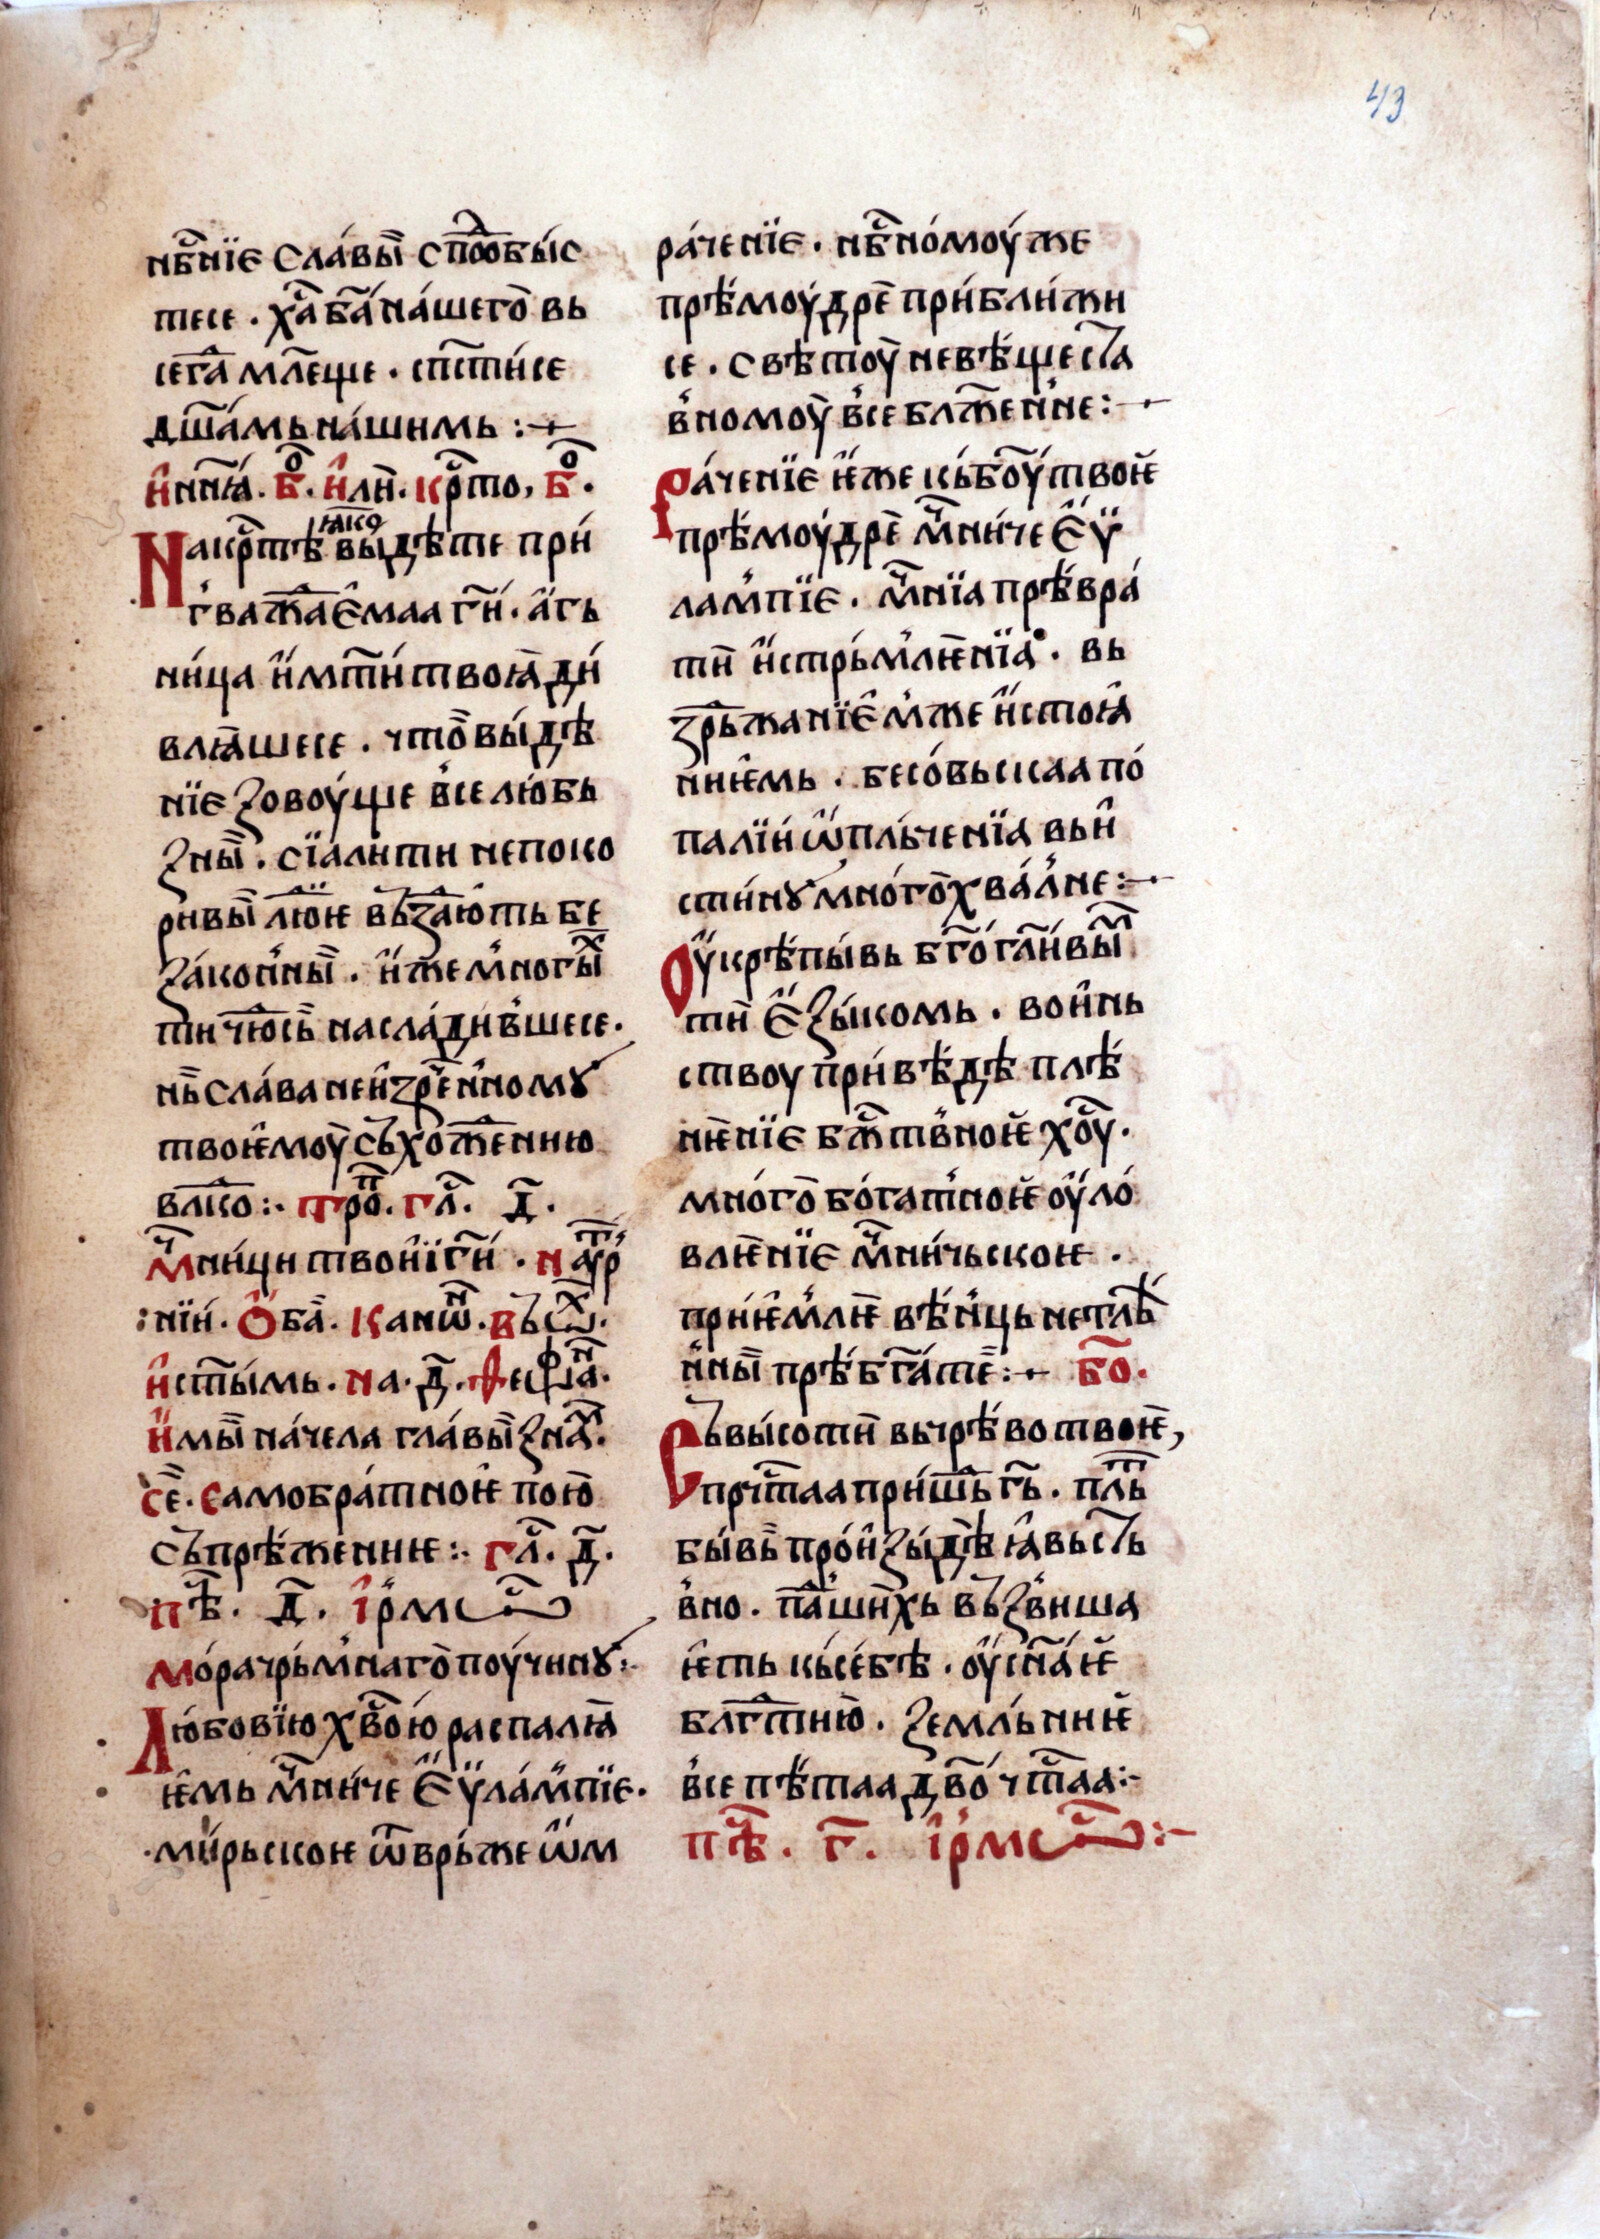 43
нбⷭ҇нїе сла́вы̏ спⷣо́бы́с
тесе . ха҃ ба҃ на́шего̀ вь
сегⷣа мл҃еще . сп҃сти́се
дш҃а́мь на́шимь :~
и҆ нн҃ꙗ́ . бⷪ҇ . и҆лѝ . крⷭ҇то , бⷪ҇ .
На крⷭ҇тѣ ꙗко вы́дѣте при́
гва́ждае҆маа гн҃и . а҆́гь
ни́ца и҆ мт҃и твоꙗ̀ ди́
влꙗ̀шесе . что̀ вы́дѣ
нїе зовоу́ще все лю́бь
зны̏ . сїа ли ти непоко
ривы̏ лю́дїе възⷣаю́ть бе
за́конны̏ . и҆́же многы́ⷯ
ти чюⷣсь̀ насла́дившесе .
нь̀ сла́ва неи҆зрⷱе́нномꙋ
твоѥ҆моу̀ съхо́жденню
влⷣко :· тро́ⷫ . глⷭ҇ . д҃ .
Мⷱ҇ни́ци твои҆ ї гн҃и . на ꙋ҆трⷮ
нїи́ . ѻ҆́ба̀ . канѡ́ⷩ . въ сѡⷯ .
и҆ стт҃ы́мь . на . д҃ . ѳеѡфаⷩ .
и҆мы̏ на́чела гла́вы̏ знаⷨ .
се̏ . самобра́тноѥ̀ пою̀
съпрѣ́женнѥ :· глⷭ҇ . д҃ .
пѣⷭ҇ . а҃ . і҆рмѡⷭ҇
Мо́ра чрьмнаго̀ поу́чинꙋ :·
Лю́бовїю хвⷭ҇о́ю распалꙗ̀
ѥ҆мь мⷱ҇ни́че е҆ѵла́мпїе .
мирьскоѥ ѿврьже ѡ҆м
ра́ченїе . нбⷭ҇но́моу́ же
прѣ́моу́дре̏ при́бли́жи
се . свѣтоу̀ невѣ́щеста
вномоу̀ все бл҃женне :~
Ра́ченїе и҆́же кь бо҃у́ твоѥ̀
прѣ́моу́дре̏ мⷱ҇ни́че е҆ѵ
ла́мпїе . мⷱ҇нїа прѣ́вра́
тѝ и҆стрьмлѥ̀нїа̀ . вь
здрьжанїе҆мже и҆стоꙗ҆
нниѥ҆мь . бесо́вьскаа по́
палїи́ ѡ҆пль́ченїа вь и҆́
сти́нꙋ мно́го̀хва́лне :~
Оу҆крѣ́пы́вь бг҃огл҃и́вы̏ⷨ
тѝ е҆зы́комь . вои҆нь
ствоу при́вѣ́дѣ плѣ́
нѥ̀нїе бжⷭ҇твноѥ̀ хоⷭ҇у́ .
мно́го̀бо́гатноѥ̀ оу҆ло́
влѥ̀нїе мⷱ҇ни́чьскоѥ .
при́ѥ҆млѥ̀ вѣ́нць нетлѣ
нны̏ прѣ́бг҃а́те̏ :~ бо҃ .
Съ вы́соти̏ вь чрѣ́во твоѥ̀ ,
прⷱ҇таа при́шⷣь гь҃ . плⷮь
бы́вь̀ прои҆зы́дѣ ꙗ҆вьсть
вно . па́дши́хь въ́звиша
ѥ҆сть кь се́бѣ . оу҆сн҃а́ѥ̀
блгⷣтию̀ . земль́ннѥ̀
все пѣ́таа дв҃о́ чⷭ҇таа :·
пѣⷭ҇ . г҃ . і҆рмѡⷭ҇ :~